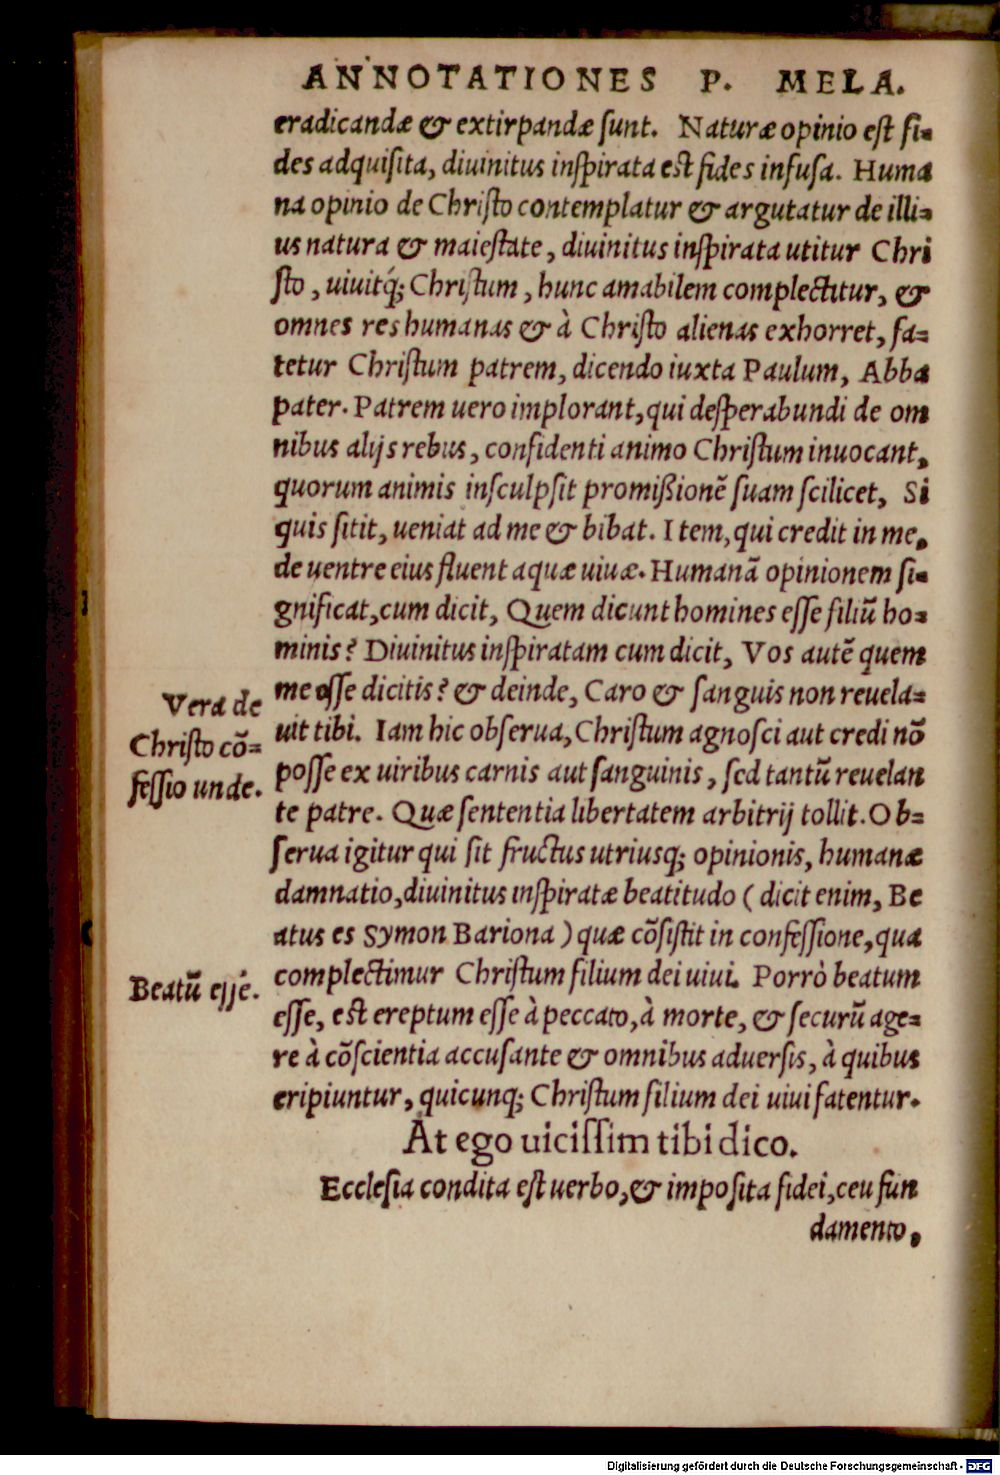 ANNOTATIONES P. MELA.
eradicandæ & extirpandæ sunt. Naturæ opinio est fi-
des adquisita, diuinitus inspirata est fides infusa. Huma
na opinio de Christo contemplatur & argutatur de illi-
us natura & maiestate, diuinitus inspirata utitur Chri
sto, uiuitq́; Christum, hunc amabilem complectitur, &
omnes res humanas & à Christo alienas exhorret, fa-
tetur Christum patrem, dicendo iuxta Paulum, Abba
pater. Patrem uero implorant, qui desperabundi de om
nibus alijs rebus, confidenti animo Christum inuocant,
quorum animis insculpsit promißionẽ suam scilicet, Si
quis sitit, ueniat ad me & bibat. Item, qui credit in me,
de uentre eius fluent aquæ uiuæ. Humanã opinionem si-
gnificat, cum dicit, Quem dicunt homines esse filiũ ho-
minis? Diuinitus inspiratam cum dicit, Vos autẽ quem
me esse dicitis? & deinde, Caro & sanguis non reuela-
uit tibi. Iam hic obserua, Christum agnosci aut credi nõ
posse ex uiribus carnis aut sanguinis, sed tantũ reuelan
te patre. Quæ sententia libertatem arbitrij tollit. Ob-
serua igitur qui sit fructus utriusq; opinionis, humanæ
damnatio, diuinitus inspiratæ beatitudo ( dicit enim, Be
atus es Symon Bariona ) quæ cõsistit in confessione, qua
complectimur Christum filium dei uiui. Porrò beatum
esse, est ereptum esse à peccato, à morte, & securũ age-
re à cõscientia accusante & omnibus aduersis, à quibus
eripiuntur, quicunq; Christum filium dei uiui fatentur.
At ego uicissim tibi dico.
Ecclesia condita est uerbo, & imposita fidei, ceu fun
damento,
Vera de
Christo cõ-
fessio unde.
Beatũ esse.
Digitalisierung gefördert durch die Deutsche Forschungsgemeinschaft - DFG